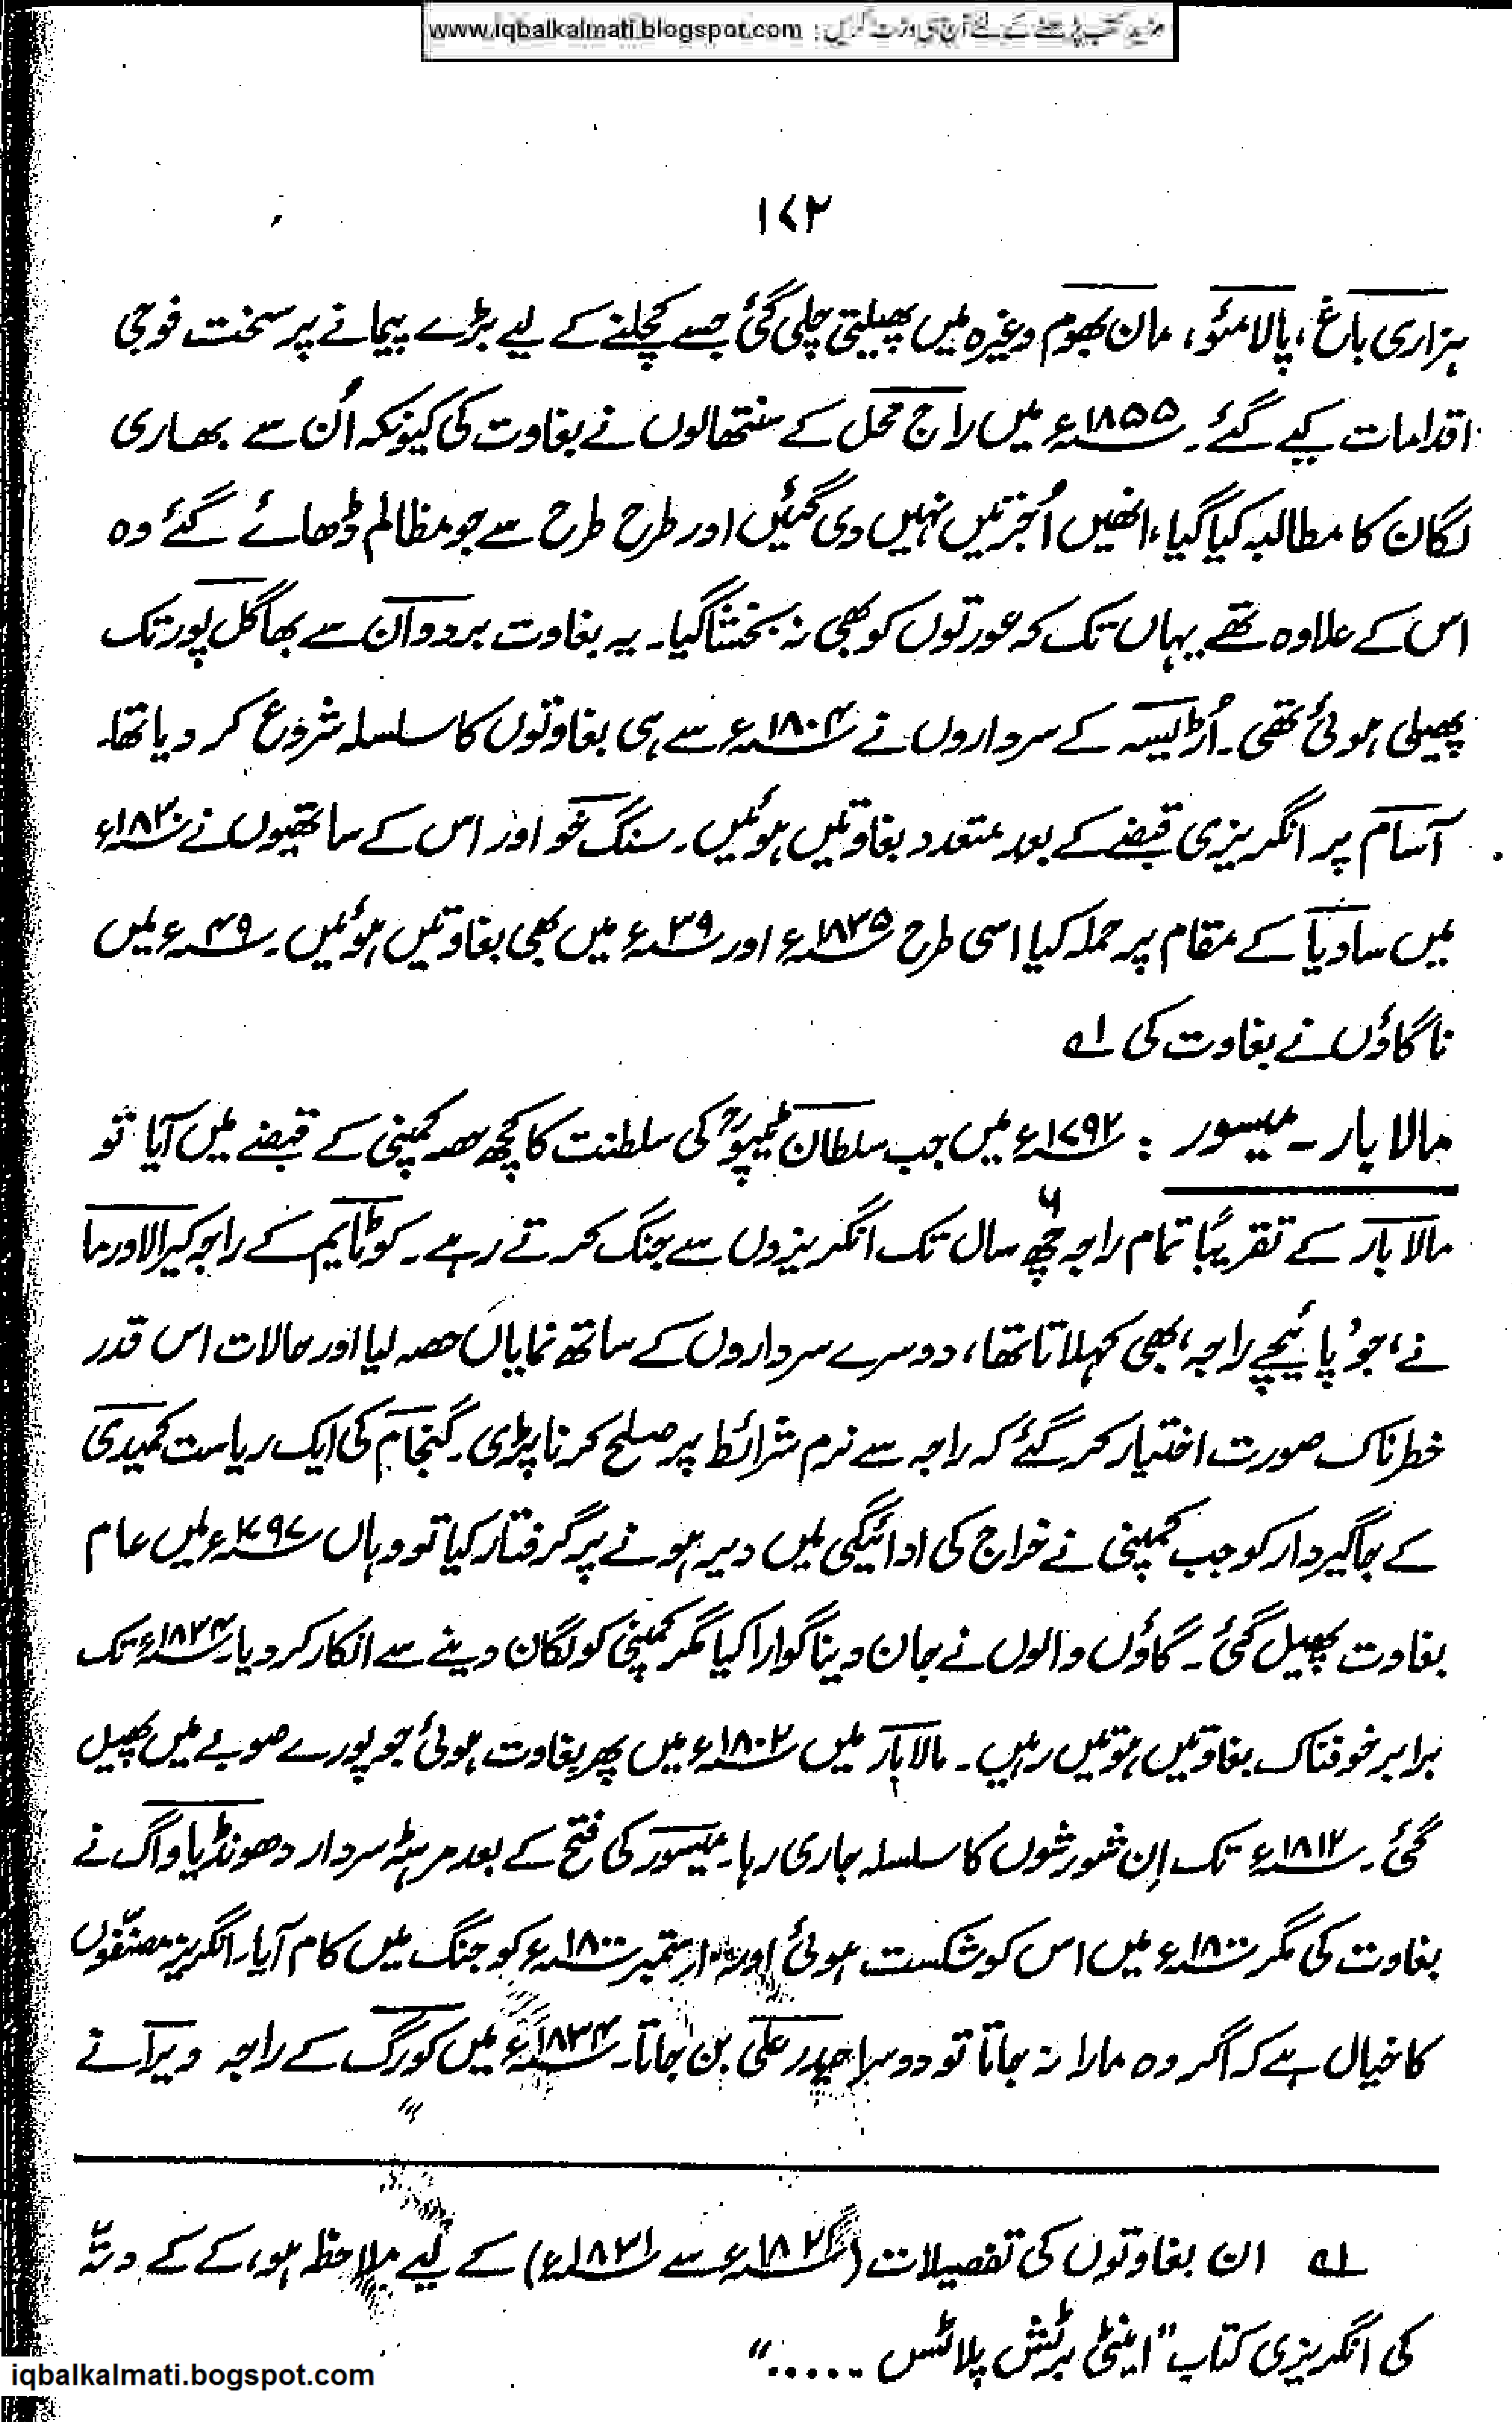 www.iqbalkalmati.blogspot.com : مزید کتب پڑھنے کے لئے آج ہی وزٹ کریں
۱۷۲
ہزاری باغ، پالامئو، مان بھوم وغیرہ میں پھیلتی چلی گئی جسے کچلنے کے لیے بڑے پیمانے پر سخت فوجی
اقدامات کیے گئے۔ ۱۸۵۵ء میں راج محل کے سنتھالوں نے بغاوت کی کیونکہ اُن سے بھاری
لگان کا مطالبہ کیا گیا، انھیں اُجرتیں نہیں دی گئیں اور طرح طرح سے جو مظالم ڈھائے گئے وہ
اس کے علاوہ تھے یہاں تک کہ عورتوں کو بھی نہ بخشا گیا۔ یہ بغاوت بردوان سے بھاگل پور تک
پھیلی ہوئی تھی۔ اُڑیسہ کے سرداروں نے ۱۸۰۴ء سے ہی بغاوتوں کا سلسلہ شروع کر دیا تھا۔
آسام پر انگریزی قبضے کے بعد متعدد بغاوتیں ہوئیں۔ سنگ فو اور اس کے ساتھیوں نے ۱۸۳۰ء
میں سادیا کے مقام پر حملہ کیا اسی طرح ۱۸۳۵ء اور ۳۹ء میں بھی بغاوتیں ہوئیں۔ ۴۹ء میں
ناگاؤں نے بغاوت کی ؎۱
مالابار۔ میسور : ۱۷۹۲ء میں جب سلطان ٹیپوؒ کی سلطنت کا کچھ حصہ کمپنی کے قبضے میں آیا تو
مالابار کے تقریباً تمام راجہ چھ ۶ سال تک انگریزوں سے جنگ کرتے رہے۔ کوٹایم کے راجہ کیرالا ورما
نے، جو 'پائیچے راجہ' بھی کہلاتا تھا، دوسرے سرداروں کے ساتھ نمایاں حصہ لیا اور حالات اس قدر
خطرناک صورت اختیار کر گئے کہ راجہ سے نرم شرائط پر صلح کرنا پڑی۔ گنجام کی ایک ریاست کمیدی
کے جاگیردار کو جب کمپنی نے خراج کی ادائیگی میں دیر ہونے پر گرفتار کیا تو وہاں ۱۷۹۷ء میں عام
بغاوت پھیل گئی۔ گاؤں والوں نے جان دینا گوارا کیا مگر کمپنی کو لگان دینے سے انکار کر دیا۔ ۱۸۳۴ء تک
برابر خوفناک بغاوتیں ہوتیں رہیں۔ مالابار میں ۱۸۰۲ء میں پھر بغاوت ہوئی جو پورے صوبے میں پھیل
گئی۔ ۱۸۱۲ء تک اِن شورشوں کا سلسلہ جاری رہا۔ میسور کی فتح کے بعد مرہٹہ سردار دھونڈیا واگ نے
بغاوت کی مگر ۱۸۰۰ء میں اس کو شکست ہوئی اور ستمبر ۱۸۰۰ء کو جنگ میں کام آیا۔ انگریز مصنّفوں
کا خیال ہے کہ اگر وہ مارا نہ جاتا تو دوسرا حیدر علی بن جاتا۔ ۱۸۳۴ء میں کورگ کے راجہ ویرا نے
؎۱ ان بغاوتوں کی تفصیلات (سے ۱۸۳۱ء) کے لیے ملاحظہ ہو، کے کے دتّہ
کی انگریزی کتاب "اینٹی برٹش پلاٹس ....."
iqbalkalmati.bogspot.com